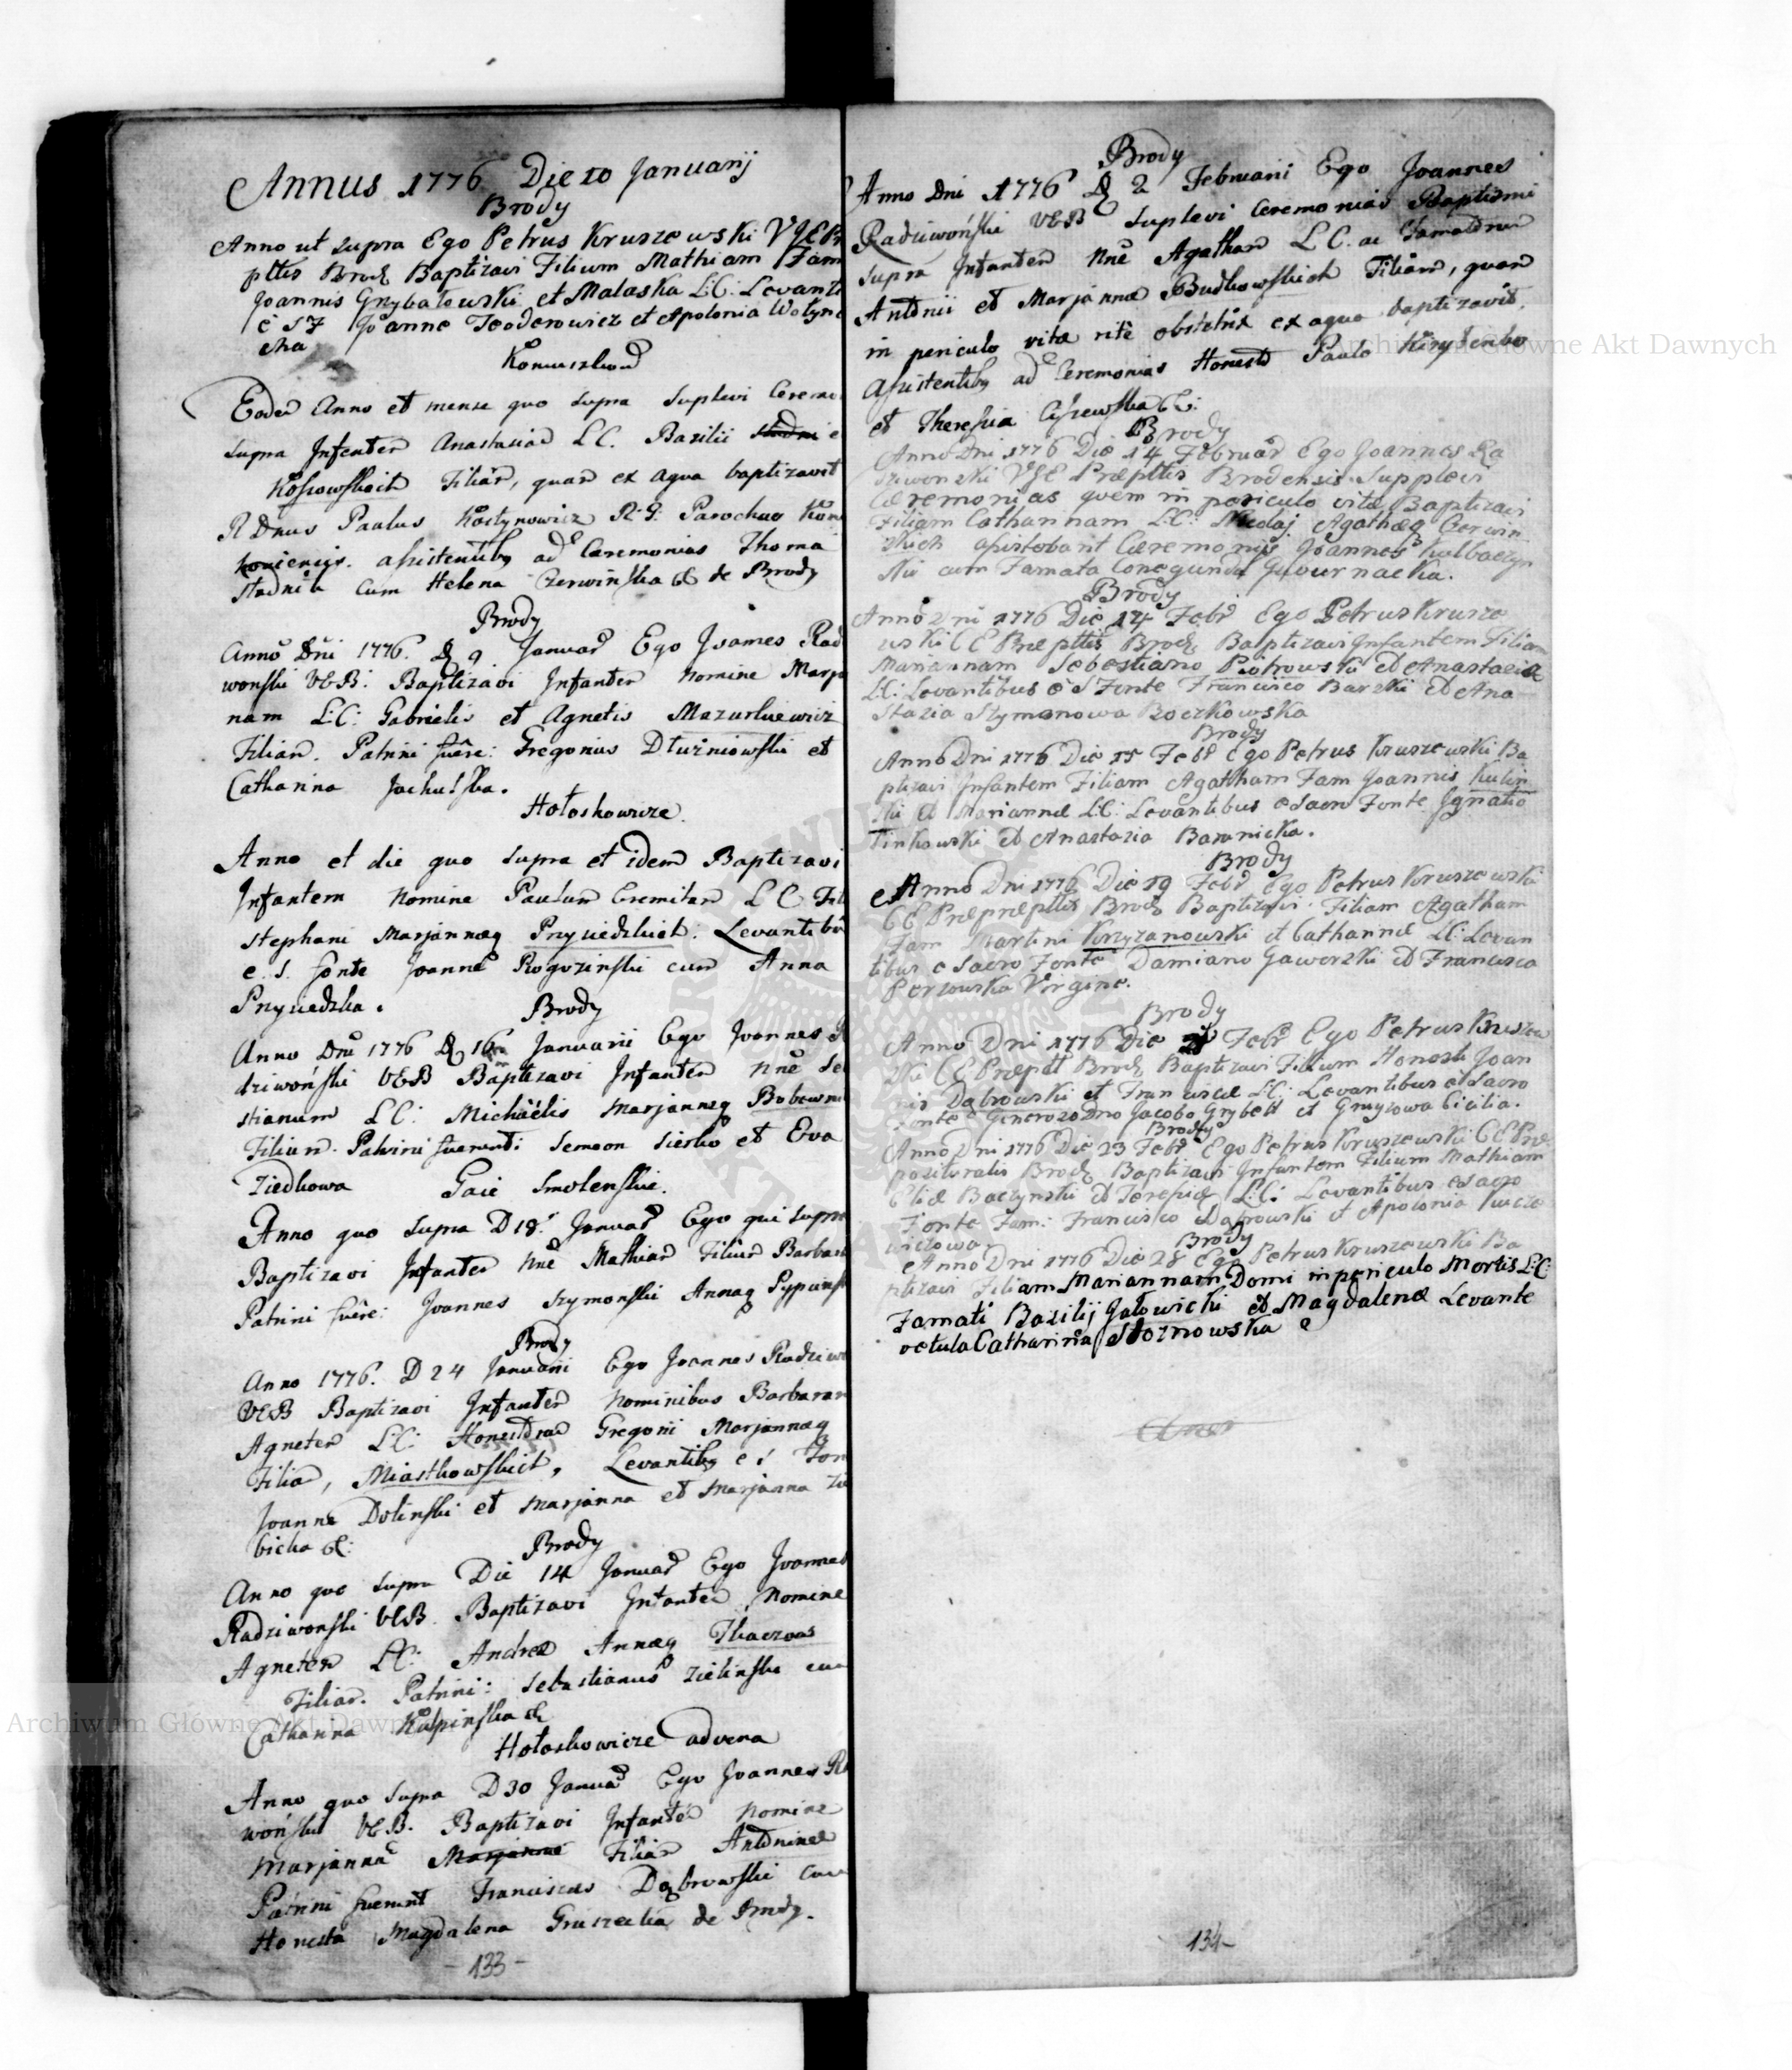 Annus 1776 Die 10 Januarij
Brody
Anno ut supra Ego Petrus Kruszewski
pttis Brod Baptizavi Filium Mathiam Fam
Joannis Grybałowski et Malaska L:C: Levanti
è S F Joanne Teoderowicz et Apolonia Wołyn
cka
Eodem Anno et mense quo supra Suplevi Ceremo
supra Infantem Anastasiam L C. Bazilii
Kossowskich Filiam, quam ex aqua baptizavit
R Dnus Paulus Kostynowicz R: G: Parochus
assistentibus ad Ceremonias Thoma
cum Helena Czerwinska de Brody
Brody
Anno Dni 1776. D 9 Januar Ego Joannes Rad
wonski VCB: Baptizavi Infantem Nomine Marja
nam L:C: Gabrielis et Agnetis Mazurkiewicz
Filiam. Patrini fuere: Gregorius Dłuzniowski et
Catharina
Hołoskowicze.
Anno et die quo supra et idem Baptizavi
Infantem Nomine Paulum Eremitam L C Fil
Stephani Marjannæq Przyiedzkich: Levantib
e. S. fonte Joanne Rogozinski cum Anna
Przyiedzka.
Brody
Anno Dni 1776 D 16 Januarii Ego Joannes R
dziwoński VCB Baptizavi Infantem Nne Se
stianum L C: Michäelis Marjannæq
Filium. Patrini fuerunt: Semeon Sierko et Eva
Ziedkowa
Gaie Smolenskie.
Anno quo supra D 18. Januar Ego qui supra
Baptizavi Infantem Nne Mathiam Filium Barbar
Patrini fuere: Joannes Szymonski Annaq
Brody
Anno 1776. D 24 Januarii Ego Joannes Radziw
VCB Baptizavi Infantem Nominibus Barbaram
Agnetem L:C: Gregorii Marjannæq
Filiam, Miastkowskich, Levantibq e S Fon
Joanne Dolinski et Marjanna et Marjanna
bicka
Brody
Anno quo supra Die 14 Januar Ego Joannes
Radziwonski VCB Baptizavi Infantem Nomine
Agnetem L:C: Andreæ Annæq Tkaczow
Filiam. Patrini: Sebastianus Zielinski cum
Catharina
Hołoskowicze advena
Anno quo supra D 30 Januar Ego Joannes R
woński VCB. Baptizavi Infantem Nomine
Marjanna Marjannæ Filiam Antoninæ
Patrini fuerunt Franciscus Dąbrowski cum
Honesta Magdalena de Brody.
- 133 -
Brody
Anno Dni 1776 D 2 Februarii Ego Joannes
Radziwoński VCB Suplevi Ceremonias Baptismi
supra Infantem Nne Agatham L C. ac Famatorum
Antonii et Marjannæ Budkowskich Filiam, quam
in periculo vitæ rite obstetrix ex aqua baptizavit.
Assistentibq ad Ceremonias Honesto Paulo
et Theressia
Brody
Anno Dni 1776 Die 14 Februar Ego Joannes Ra
dziwonzki Præpttis Brodensis Supplevi
Cæremonias quem in periculo vitæ Baptizavi
Filiam Catharinam L:C: Agathæq Czerwin
skich assistebant Cæremoniis Joannes Kulbaczyn
ski cum Famata Conegunda
Brody
Anno Dni 1776 Die 14 Febr Ego Petrus Krusze
wski CE Præpttis Brod Baptizavi Infantem Filiam
Mariannam Sebestiano Piotrowski et Anastazia
L:C: Levantibus è S Fonte Francisco Barzki et Ana
stazia Szymonowa Boczkowska
Brody
Anno Dni 1776 Die 15 Febr Ego Petrus Kruszewski Ba
ptizavi Infantem Filiam Agatham Fam Joannis Kulin
ski et Mariannæ L:C: Levantibus e Sacro Fonte Ignatio
Tinkowski et Anastazia Baranicka.
Brody
Anno Dni 1776 Die 19 Febr Ego Petrus Kruszewski
CE Præpttis Brod Baptizavi Filiam Agatham
Fam Martini Krzyzanowski et Catharinæ L:C: Levan
tibus e Sacro Fonte Damiano Jaworzki et Francisca
Perzowska Virgine.
Brody
Anno Dni 1776 Die Febr Ego Petrus Kruszew
zki CE Præptt Brod Baptizavi Filium Honesti Joan
nis Dąbrowski et Franciscæ L:C: Levantibus e Sacro
Fonte Generozo Dno Jacobo Grybell et Gruyzowa Cicilia.
Brody
Anno Dni 1776 Die 23 Febr Ego Petrus Kruszewski CE Præ
pozituralis Brod Baptizavi Infantem Filium Mathiam
Eliæ Baczynski et Teressiæ L:C: Levantibus e Sacro
Fonte Fam: Francisco Dąbrowski et Apolonia
wiczowa
Brody
Anno Dni 1776 Die 28 Ego Petrus Kruszewski Ba
ptizavi Filiam Mariannam Domi in periculo Mortis L:C:
Famati Bazilij Jałowicki et Magdalenæ Levante
vetula Catharina Słoznowska
134-
Archiwum Główne Akt Dawnych
Archiwum Główne Akt Dawnych